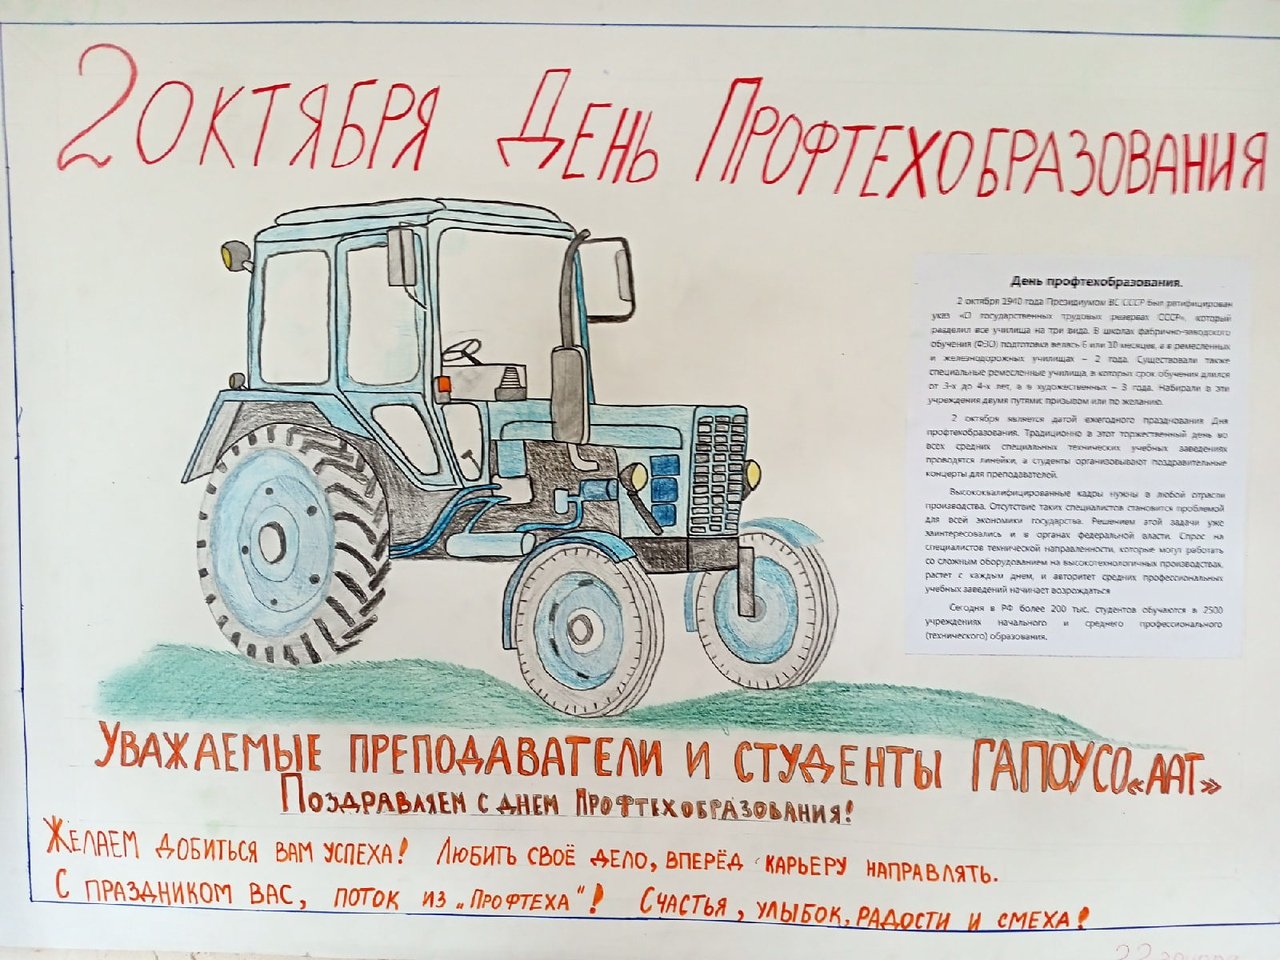 2 октября День Профтехобразования
День профтехобразования.
2 октября 1940 года Президиумом ВС СССР был ратифицирован
указ «О государственных трудовых резервах СССР», который
разделил все училища на три вида. В школах фабрично-заводского
обучения (ФЗО) подготовка велась 6 или 10 месяцев, а в ремесленных
и железнодорожных училищах – 2 года. Существовали также
специальные ремесленные училища, в которых срок обучения длился
от 3-х до 4-х лет, а в художественных – 3 года. Набирали в эти
учреждения двумя путями: призывом или по желанию.
2 октября является датой ежегодного празднования Дня
профтехобразования. Традиционно в этот торжественный день во
всех средних специальных технических учебных заведениях
проводятся линейки, а студенты организовывают поздравительные
концерты для преподавателей.
Высококвалифицированные кадры нужны в любой отрасли
производства. Отсутствие таких специалистов становится проблемой
для всей экономики государства. Решением этой задачи уже
заинтересовались и в органах федеральной власти. Спрос на
специалистов технической направленности, которые могут работать
со сложным оборудованием на высокотехнологичных производствах,
растет с каждым днем, и авторитет средних профессиональных
учебных заведений начинает возрождаться
Сегодня в РФ более 200 тыс. студентов обучаются в 2500
учреждениях начального и среднего профессионального
(технического) образования.
Уважаемые преподаватели и студенты ГАПОУСО«ААТ»
Поздравляем с днем Профтехобразования!
Желаем добиться вам успеха! Любить своё дело, вперёд карьеру направлять.
С праздником вас, поток из „Профтеха"! Счастья, улыбок, радости и смеха!
22 группа